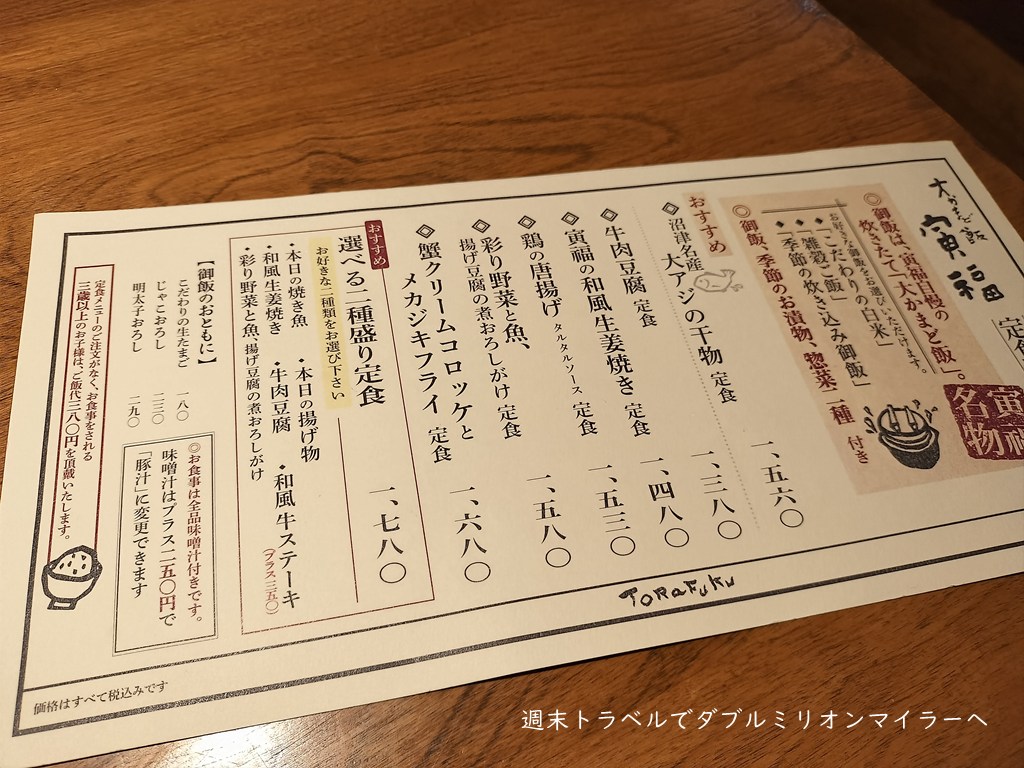 大かまど飯
寅福
寅福
名物
◎御飯は、寅福自慢の
炊きたて「大かまど飯」。
お好きな御飯をお選びいただけます。
◆「こだわりの白米」
◆「雑穀ご飯」
◆「季節の炊き込み御飯」
◎御飯、季節のお漬物、惣菜二種 付き
おすすめ
◇沼津名産
大アジの干物 定食 一、五六〇
◇牛肉豆腐 定食 一、三八〇
◇寅福の和風生姜焼き 定食 一、四八〇
◇鶏の唐揚げ タルタルソース 定食 一、五三〇
◇彩り野菜と魚、
揚げ豆腐の煮おろしがけ 定食 一、五八〇
◇蟹クリームコロッケと
メカジキフライ 定食 一、六八〇
おすすめ
選べる二種盛り定食 一、七八〇
お好きな二種類をお選び下さい
・本日の焼き魚 ・本日の揚げ物
・和風生姜焼き ・牛肉豆腐 ・和風牛ステーキ
(プラス三五〇)
・彩り野菜と魚、揚げ豆腐の煮おろしがけ
【御飯のおともに】
こだわりの生たまご 一八〇
じゃこおろし 二三〇
明太子おろし 二九〇
◎お食事は全品味噌汁付きです。
味噌汁はプラス二五〇円で
「豚汁」に変更できます
定食メニューのご注文がなく、お食事をされる
三歳以上のお子様は、ご飯代三八〇円を頂戴いたします。
TORaFuKu
価格はすべて税込みです
週末トラベルでダブルミリオンマイラーへ